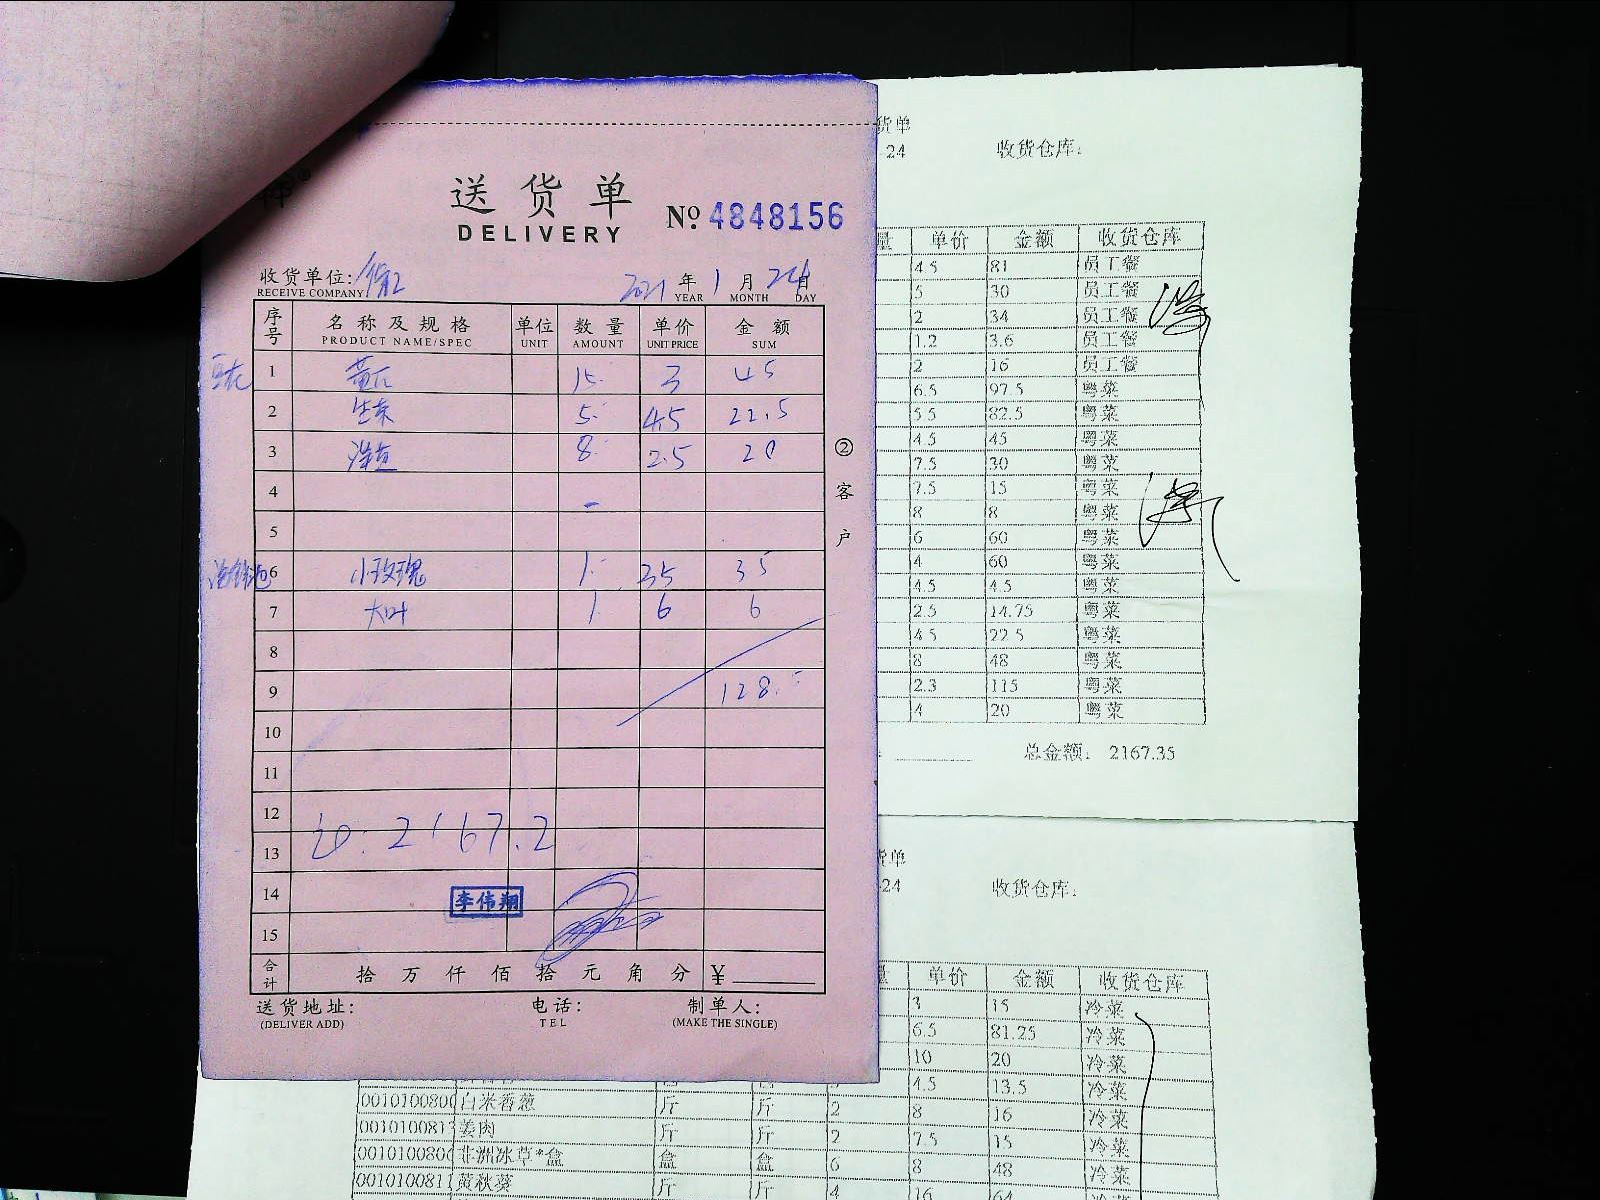 送货单
DELIVERY
№ 4848156
收货单位:
RECEIVE COMPANY
2021 年 1 月 24 日
YEAR MONTH DAY
序号 名称及规格 单位 数量 单价 金额
PRODUCT NAME/SPEC UNIT AMOUNT UNIT PRICE SUM
1 黄瓜 15 3 45
2 生菜 5 4.5 22.5
3 8 2.5 20
4
5
6 小玫瑰 1 35 35
7 大叶 1 6 6
8
9 128.
10
11
12
13 2167.2
14 李伟翔
15
合计 拾 万 仟 佰 拾 元 角 分 ¥
送货地址: 电话: 制单人:
(DELIVER ADD) TEL (MAKE THE SINGLE)
②客户
货单
24 收货仓库:
量 单价 金额 收货仓库
4.5 81 员工餐
5 30 员工餐
2 34 员工餐
1.2 3.6 员工餐
2 16 员工餐
6.5 97.5 粤菜
5.5 82.5 粤菜
4.5 45 粤菜
7.5 30 粤菜
7.5 15 粤菜
8 8 粤菜
6 60 粤菜
4 60 粤菜
4.5 4.5 粤菜
2.5 14.75 粤菜
4.5 22.5 粤菜
8 48 粤菜
2.3 115 粤菜
4 20 粤菜
总金额: 2167.35
货单
24 收货仓库:
量 单价 金额 收货仓库
3 15 冷菜
6.5 81.25 冷菜
10 20 冷菜
4.5 13.5 冷菜
0010100800 白米香葱 斤 斤 2 8 16 冷菜
0010100813 姜肉 斤 斤 2 7.5 15 冷菜
0010100800 非洲冰草*盒 盒 盒 6 8 48 冷菜
0010100811 黄秋葵 斤 斤 4 16 64